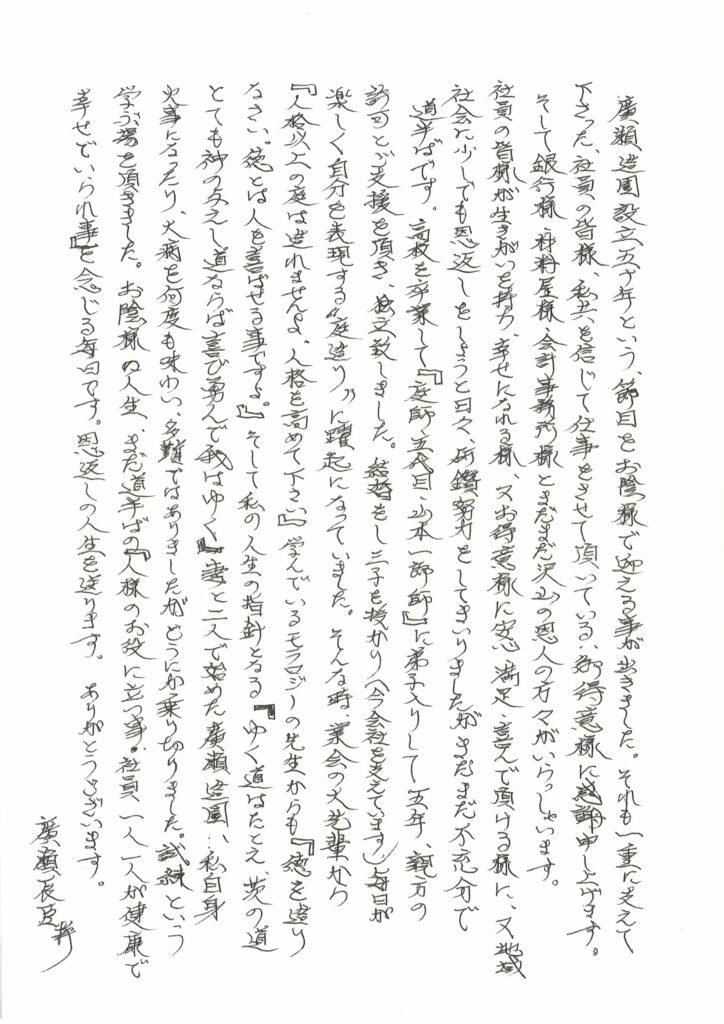 廣瀬造園設立五十年という、節目をお陰様で迎える事が出きました。それも一重に支えて
下さった、社員の皆様、私共を信じて仕事をさせて頂いている、御得意様に感謝申し上げます。
そして銀行様、材料屋様、会計事務所様とまだまだ沢山の恩人の方々がいらっしゃいます。
社員の皆様が生きがいを持ち、幸せになれる様、又お得意様に安心満足、喜んで頂ける様に、又地域
社会に少しでも恩返しをしようと日々、研鑽努力をしてまいりましたがまだまだ不充分で
道半ばです。高校を卒業して『庭師五代目・山本一郎師』に弟子入りして五年、親方の
許可とご支援を頂き、独立致しました。結婚もし三子を授かり(今会社を支えています)毎日が
楽しく自分を表現する〝庭造り〟に躍起になっていました。そんな時、業会の大先輩から
『人格以上の庭は造れませんよ、人格を高めて下さい』学んでいるモラロジーの先生からも『徳を造り
なさい。徳とは人を喜ばせる事ですよ。』そして私の人生の指針となる『ゆく道はたとえ、茨の道
とても神の与えし道ならば喜び勇んで我はゆく』妻と二人で始めた廣瀬造園、私自身
火事になったり、大病を何度も味わい、多難ではありましたがどうにか乗り切りました。試練という
学ぶ場を頂きました。お陰様の人生、まだ道半ばの『人様のお役に立つ事・社員一人一人が健康で
幸せでいられ事』を念じる毎日です。恩返しの人生を送ります。ありがとうございます。
廣瀬長臣